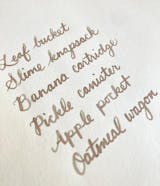 Leaf bucket
Slime knapsack
Banana cartridge
Pickle canister
Apple pocket
Oatmeal wagon